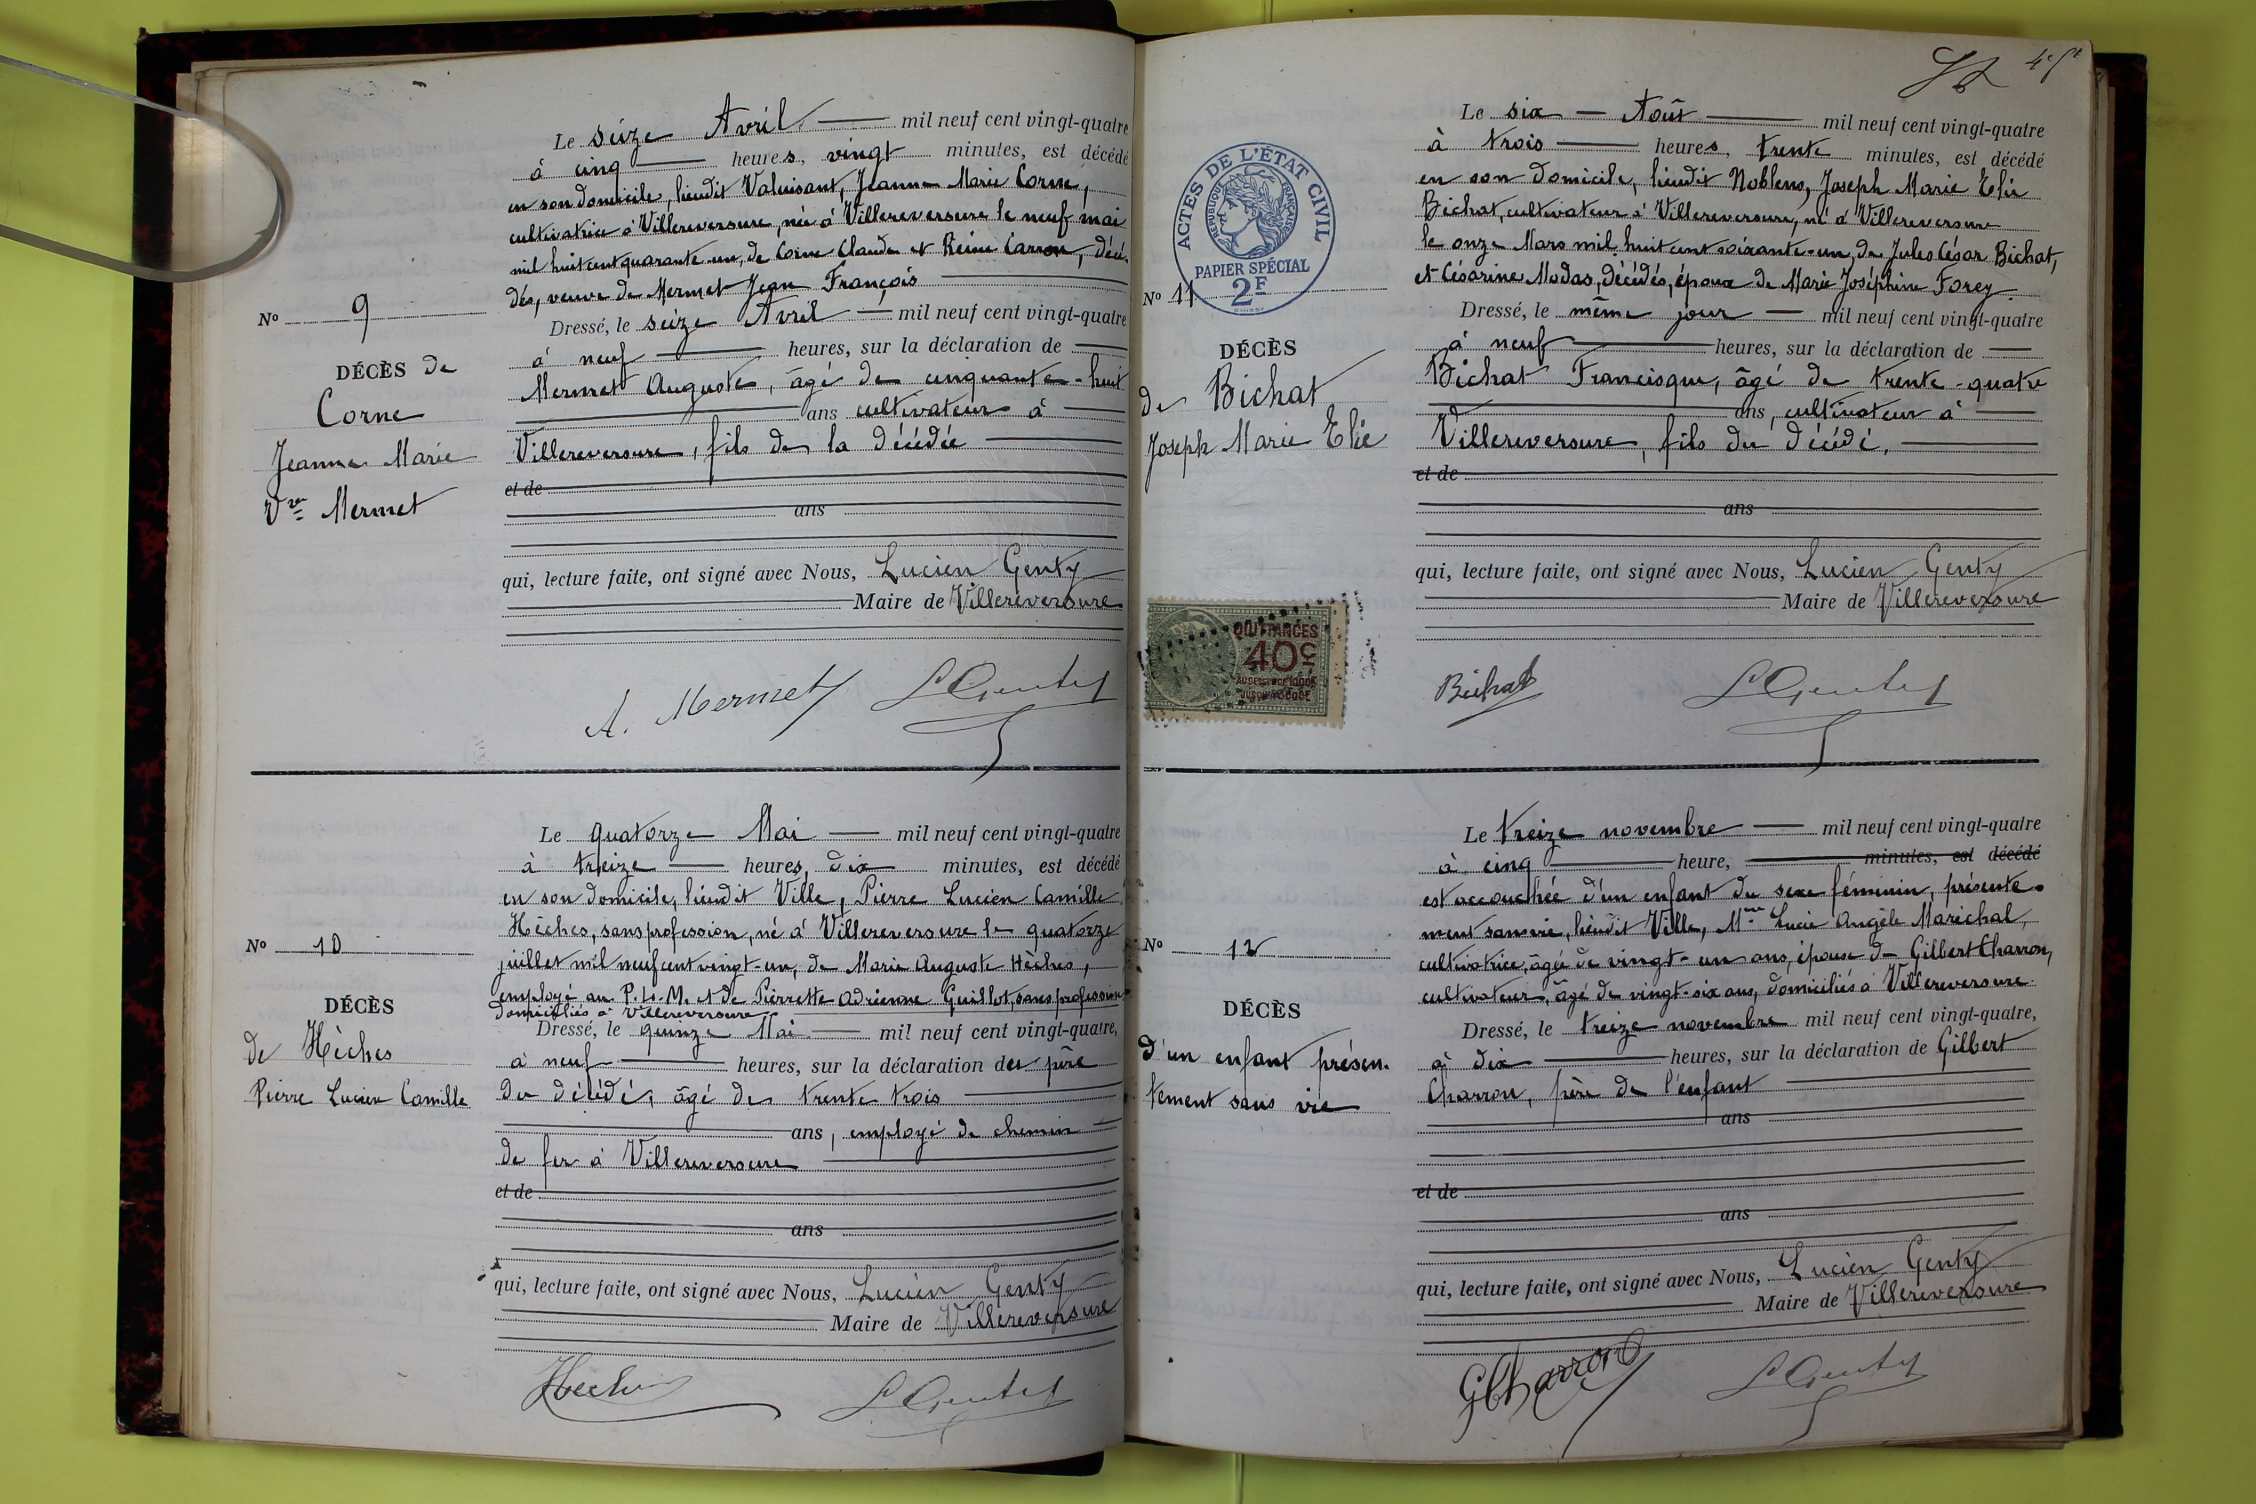 Le seize Avril mil neuf cent vingt-quatre
à cinq heures, vingt minutes, est décédé
en son domicile, lieudit Valuisant, Jeanne Marie Corne,
cultivatrice à Villereversure, née à Villereversure le neuf mai
mil huit cent quarante-un, de Corne Claude et Reine Carron, décé-
dés, veuve de Mermet Jean François
Nº 9
Dressé, le seize Avril mil neuf cent vingt-quatre
à neuf heures, sur la déclaration de
DÉCÈS de
Corne
Jeanne Marie
Vve Mermet
Mermet Auguste, âgé de cinquante-huit
ans cultivateur à
Villereversure, fils de la décédée
et de
ans
qui, lecture faite, ont signé avec Nous, Lucien Genty
Maire de Villereversure
A. Mermet LGenty
Le quatorze Mai mil neuf cent vingt-quatre
à treize heures, dix minutes, est décédé
en son domicile, lieudit Ville, Pierre Lucien Camille
Hèches, sans profession, né à Villereversure le quatorze
juillet mil neuf cent vingt-un, de Marie Auguste Hèches,
employé au P.L.M. et de Pierrette Adrienne Guillot, sans profession
domiciliés à Villereversure
Nº 10
DÉCÈS
de Hèches
Pierre Lucien Camille
Dressé, le quinze Mai mil neuf cent vingt-quatre,
à neuf heures, sur la déclaration des père
du décédé, âgé de trente trois
ans, employé de chemin
de fer à Villereversure
et de
ans
qui, lecture faite, ont signé avec Nous, Lucien Genty
Maire de Villereversure
Hèches LGenty
Le six Août mil neuf cent vingt-quatre
à trois heures, trente minutes, est décédé
en son domicile, lieudit Noblens, Joseph Marie Elie
Bichat, cultivateur à Villereversure, né à Villereversure
le onze Mars mil huit cent soixante-un, de Jules César Bichat,
et Césarine Modas, décédés, époux de Marie Joséphine Forey
ACTES DE L'ÉTAT CIVIL
RÉPUBLIQUE FRANÇAISE
PAPIER SPÉCIAL
2F
Nº 11
DÉCÈS
de Bichat
Joseph Marie Elie
Dressé, le même jour mil neuf cent vingt-quatre
à neuf heures, sur la déclaration de
Bichat Francisque, âgé de trente-quatre
ans, cultivateur à
Villereversure, fils du décédé.
et de
ans
qui, lecture faite, ont signé avec Nous, Lucien Genty
Maire de Villereversure
QUITTANCES
40c
Bichat LGenty
Le treize novembre mil neuf cent vingt-quatre
à cinq heure, minutes, est décédé
est accouchée d'un enfant du sexe féminin, présente-
ment sans vie, lieudit Ville, Mme Lucie Angèle Maréchal,
cultivatrice, âgée de vingt-un ans, épouse de Gilbert Charron,
cultivateur, âgé de vingt-six ans, domiciliés à Villereversure.
Nº 12
DÉCÈS
d'un enfant présen-
tement sans vie
Dressé, le treize novembre mil neuf cent vingt-quatre,
à dix heures, sur la déclaration de Gilbert
Charron, père de l'enfant
ans
et de
ans
qui, lecture faite, ont signé avec Nous, Lucien Genty
Maire de Villereversure
GCharron LGenty